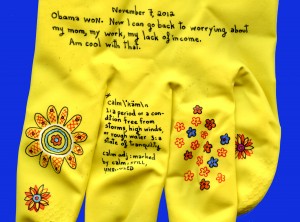 November 7, 2012
Obama won. Now I can go back to worrying about
my mom, my work, my lack of income.
Am cool with that.
calm \'käm\n
1: a period or a con-
dition free from
storms, high winds,
or rough water 2: a
state of tranquility
calm adj: marked
by calm: STILL,
UNRUFFLED